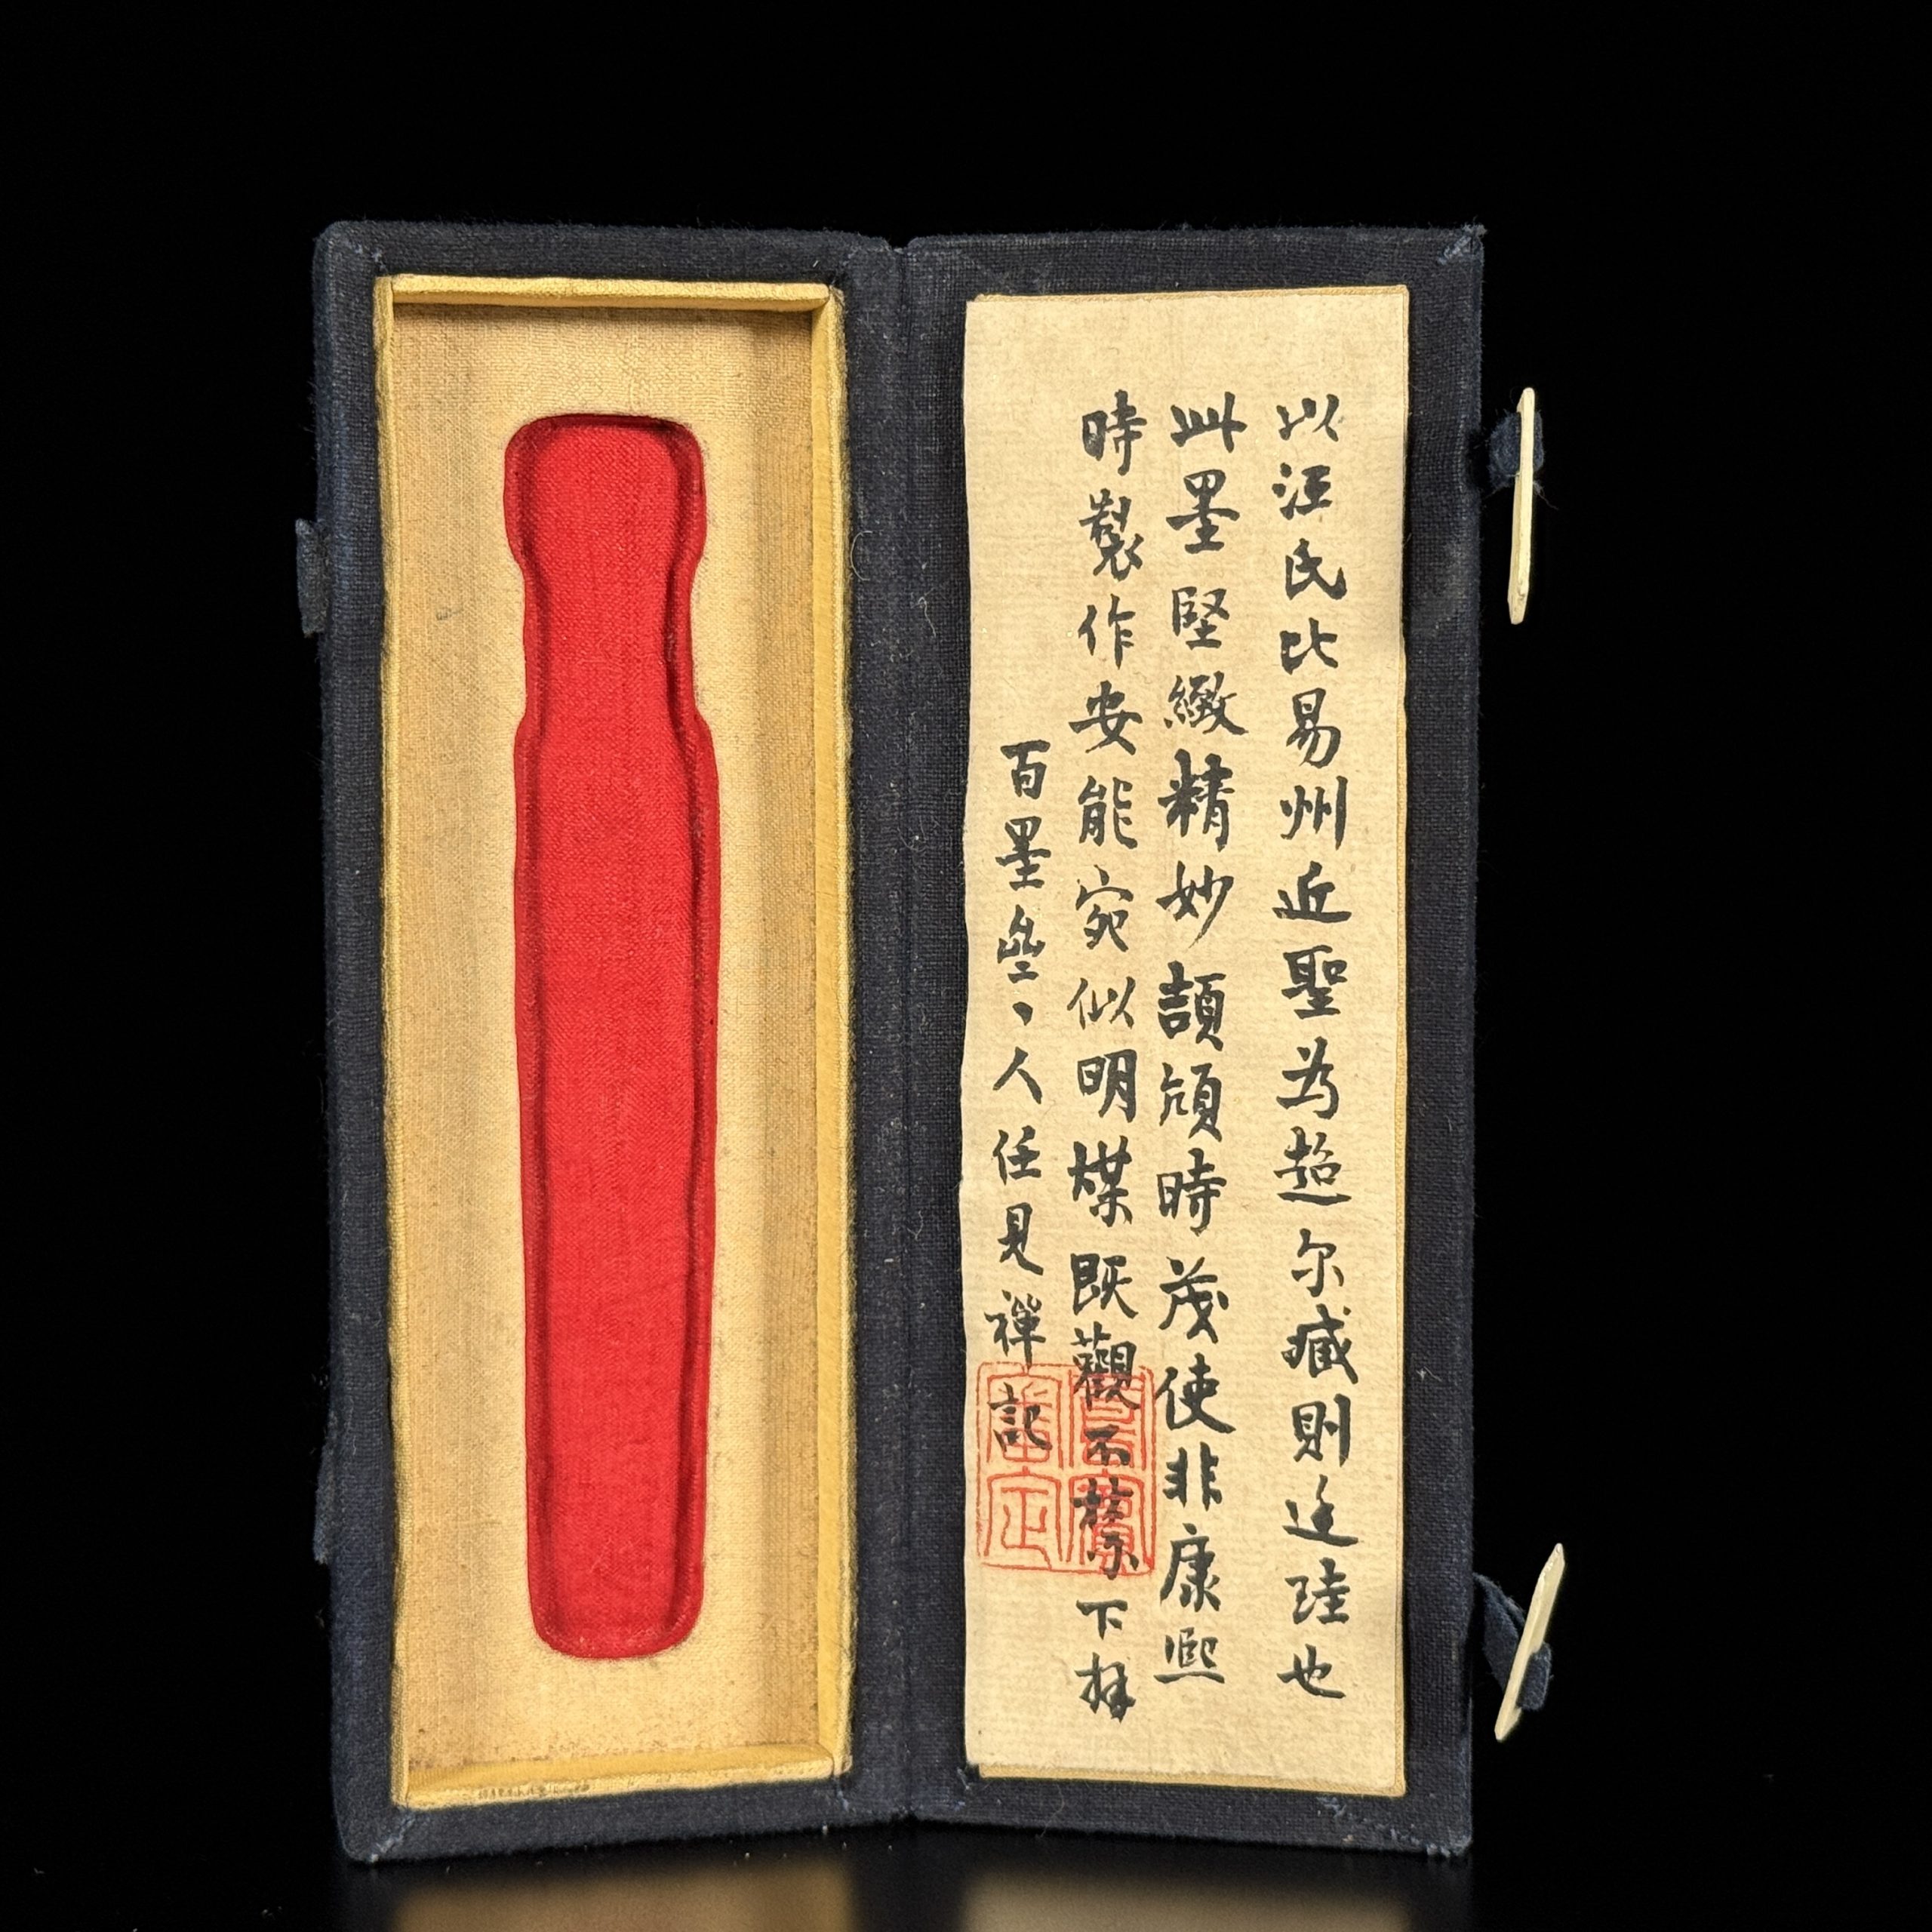 以汪氏比易州近聖為超尔臧則廷珪也
此墨堅緻精妙頡頏時茂使非康熙
時製作安能宛似明煤既觀不禁下拜
百墨垒丶人任見禪記
審定